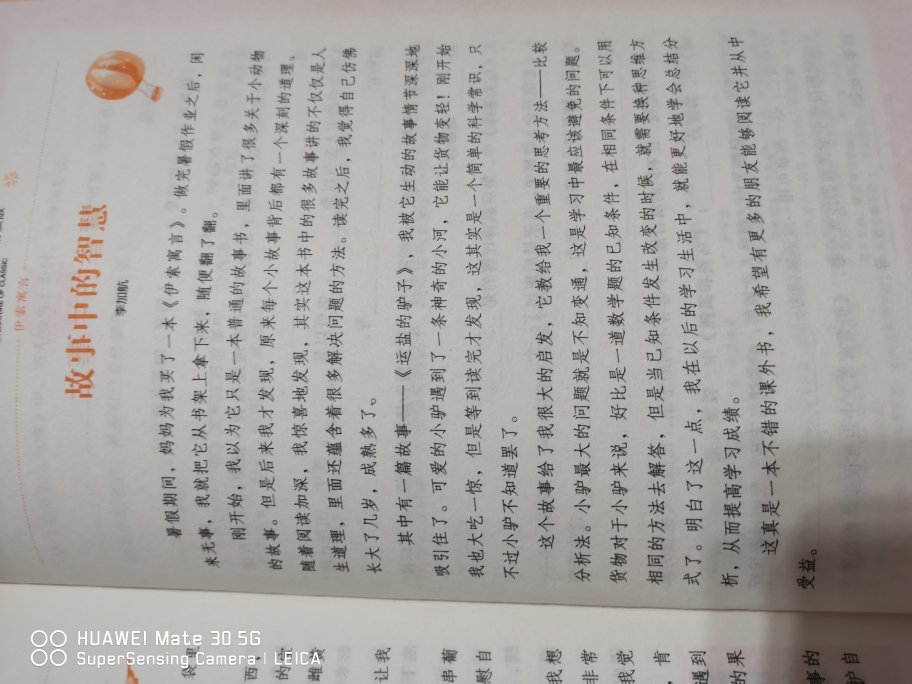 伊索寓言
故事中的智慧
李加航
暑假期间，妈妈为我买了一本《伊索寓言》。做完暑假作业之后，闲
来无事，我就把它从书架上拿下来，随便翻了翻。
刚开始，我以为它只是一本普通的故事书，里面讲了很多关于小动物
的故事。但是后来我才发现，原来每个小故事背后都有一个深刻的道理。
随着阅读加深，我惊喜地发现，其实这本书中的很多故事讲的不仅仅是人
生道理，里面还蕴含着很多解决问题的方法。读完之后，我觉得自己仿佛
长大了几岁，成熟多了。
其中有一篇故事——《运盐的驴子》，我被它生动的故事情节深深地
吸引住了。可爱的小驴遇到了一条神奇的小河，它能让货物变轻！刚开始
我也大吃一惊，但是等到读完才发现，这其实是一个简单的科学常识，只
不过小驴不知道罢了。
这个故事给了我很大的启发，它教给我一个重要的思考方法——比较
分析法。小驴最大的问题就是不知变通，这是学习中最应该避免的问题。
货物对于小驴来说，好比是一道数学题的已知条件，在相同条件下可以用
相同的方法去解答，但是当已知条件发生改变的时候，就需要换种思维方
式了。明白了这一点，我在以后的学习生活中，就能更好地学会总结分
析，从而提高学习成绩。
这真是一本不错的课外书，我希望有更多的朋友能够阅读它并从中
受益。
西，
的
让我
串葡
慰自
我想
非常
我觉
肯
遇到
的果
事的
自
HUAWEI Mate 30 5G
SuperSensing Camera | LEICA